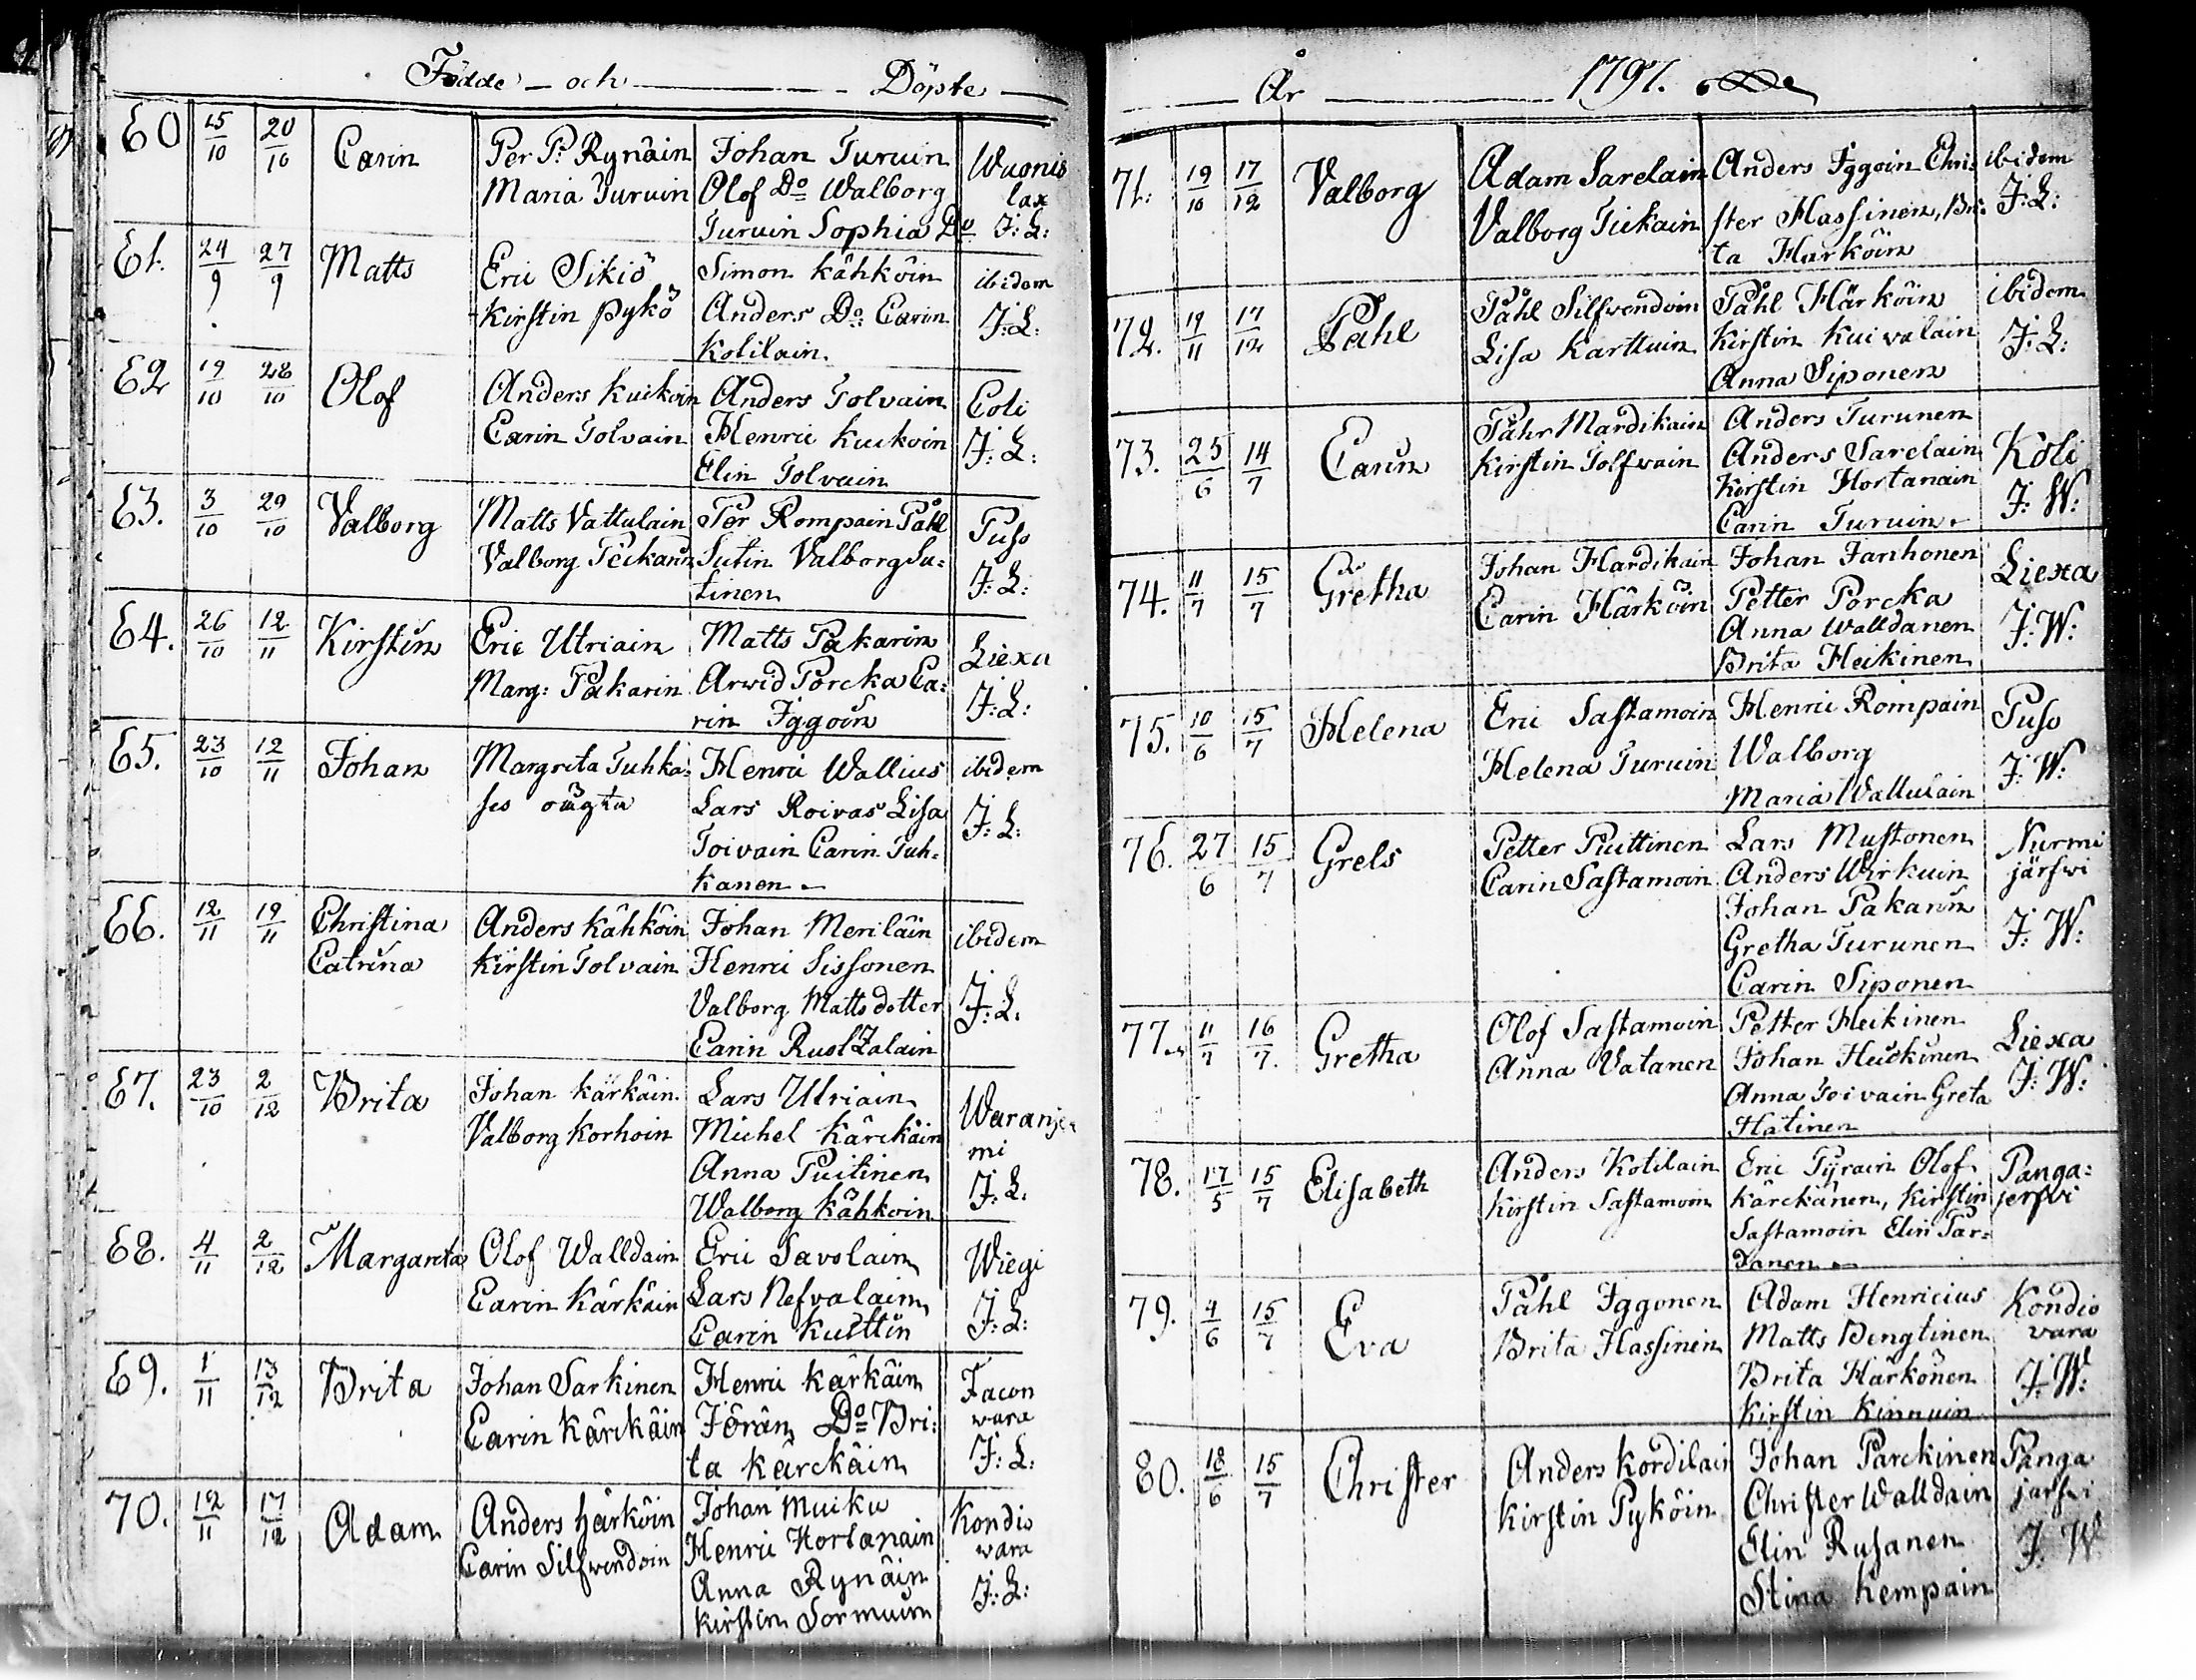 Födde - och - Döpte
60 15/10 20/10 Carin Per P: Rynäin Johan Turuin Wuonis
Maria Turuin Olof Do Walborg lax
Turuin Sophia Do J: L:
61. 24/9 27/9 Matts Eric Sikiö Simon Kähköin ibidem
Kirstin Pykö Anders Do: Carin J: L:
Kotilain
62 19/10 28/10 Olof Anders Kuikoin Anders Tolvain Coli
Carin Tolvain Henric Kuikoin J: L:
Elin Tolvain
63. 3/10 29/10 Valborg Matts Vattulain Per Rompain Påhl Puso
Valborg Peikarin Sutin Valborg Su= J: L:
tinen
64. 26/10 12/11 Kirstin Eric Utriain Matts Pakarin Liexa
Marg: Pakarin Arwid Porcka Ca= J: L:
rin Iggoin
65. 23/10 12/11 Johan Margreta Tuhka= Henric Wallius ibidem
ses oägta Lars Roivas Lisa J: L:
Toivain Carin Tuh=
kanen
66. 12/11 19/11 Christina Anders Kähköin Johan Meriläin ibidem
Catrina Kirstin Tolvain Henric Sissonen
Valborg Matts dotter J: L.
Carin Ruotzalain
67. 23/10 2/12 Brita Johan Kärkäin Lars Utriain
Valborg Korhoin Michel Kärckäin mi
Anna Puitinen J: L.
Walborg Kähkoin
68. 4/11 2/12 Margareta Olof Walldain Eric Savolain Wiegi
Carin Kärkäin Lars Nefvalain J: L:
Carin Kuittin
69. 1/11 13/12 Brita Johan Sarkinen Henric Kärkäin Jacon
Carin Kärckäin Jöran Do Bri= wara
ta Kärckäin J: L:
70. 12/11 17/12 Adam Anders Härköin Johan Muiku Kondio
Carin Silfwendoin Henric Hortanain wara
Anna Rynäin J: L:
Kirstin Sormuin
År 1797.
71. 19/10 17/12 Valborg Adam Sarelain Anders Iggoin Chri= ibidem
Valborg Tiikain ster Hassinen, Bri= J: L:
ta Harköin
72. 19/11 17/12 Påhl Påhl Silfvendoin Påhl Härköin ibidem
Lisa Karttuin Kirstin Kuivalain J: L:
Anna Siponen
73. 25/6 14/7 Carin Påhr Mardikain Anders Turunen
Kirstin Tolfvain Anders Sarelain Koli
Kirstin Hortanain J: W:
Carin Turuin
74. 11/7 15/7 Gretha Johan Hardikain Johan Janhonen Liexa
Carin Härköin Petter Porcka
Anna Walldanen J: W:
Brita Heikinen
75. 10/6 15/7 Helena Eric Sastamoin Henric Rompain Puso
Helena Turuin Walborg J: W:
Maria Wattulain
76. 27/6 15/7 Grels Petter Puittinen Lars Mustonen Nurmi
Carin Sastamoin Anders Wirkuin järfwi
Johan Pakarin J: W:
Gretha Turunen
Carin Siponen
77. 11/7 16/7. Gretha Olof Sastamoin Petter Heikinen Liexa
Anna Vatanen Johan Heickinen J: W:
Anna Toivain Greta
Hatinen
78. 17/5 15/7 Elisabeth Anders Kotilain Eric Pyrain Olof Panga=
Kirstin Sastamoin Kärckänen, Kirstin jerfvi
Sastamoin Elin Par=
danen
79. 4/6 15/7 Eva Påhl Iggonen Adam Henricius Kondio
Brita Hassinen Matts Bengtinen vara
Brita Härkönen J: W:
Kirstin Kinnuin
80. 18/6 15/7 Christer Anders Kordilain Johan Parckinen Panga
Kirstin Pyköin Christer Walldain jarfvi
Elin Rusanen J: W
Stina Kempain